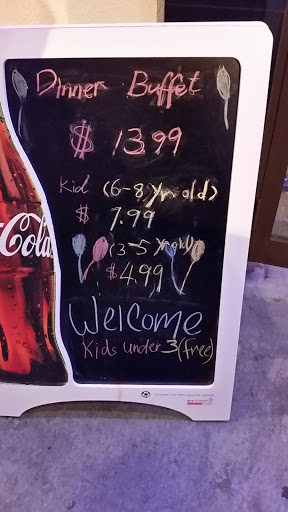 Dinner Buffet
$ 13.99
Kid (6-8 yr old)
$ 7.99
(3-5 yr old)
$ 4.99
Welcome
Kids under 3 (free)
Cola